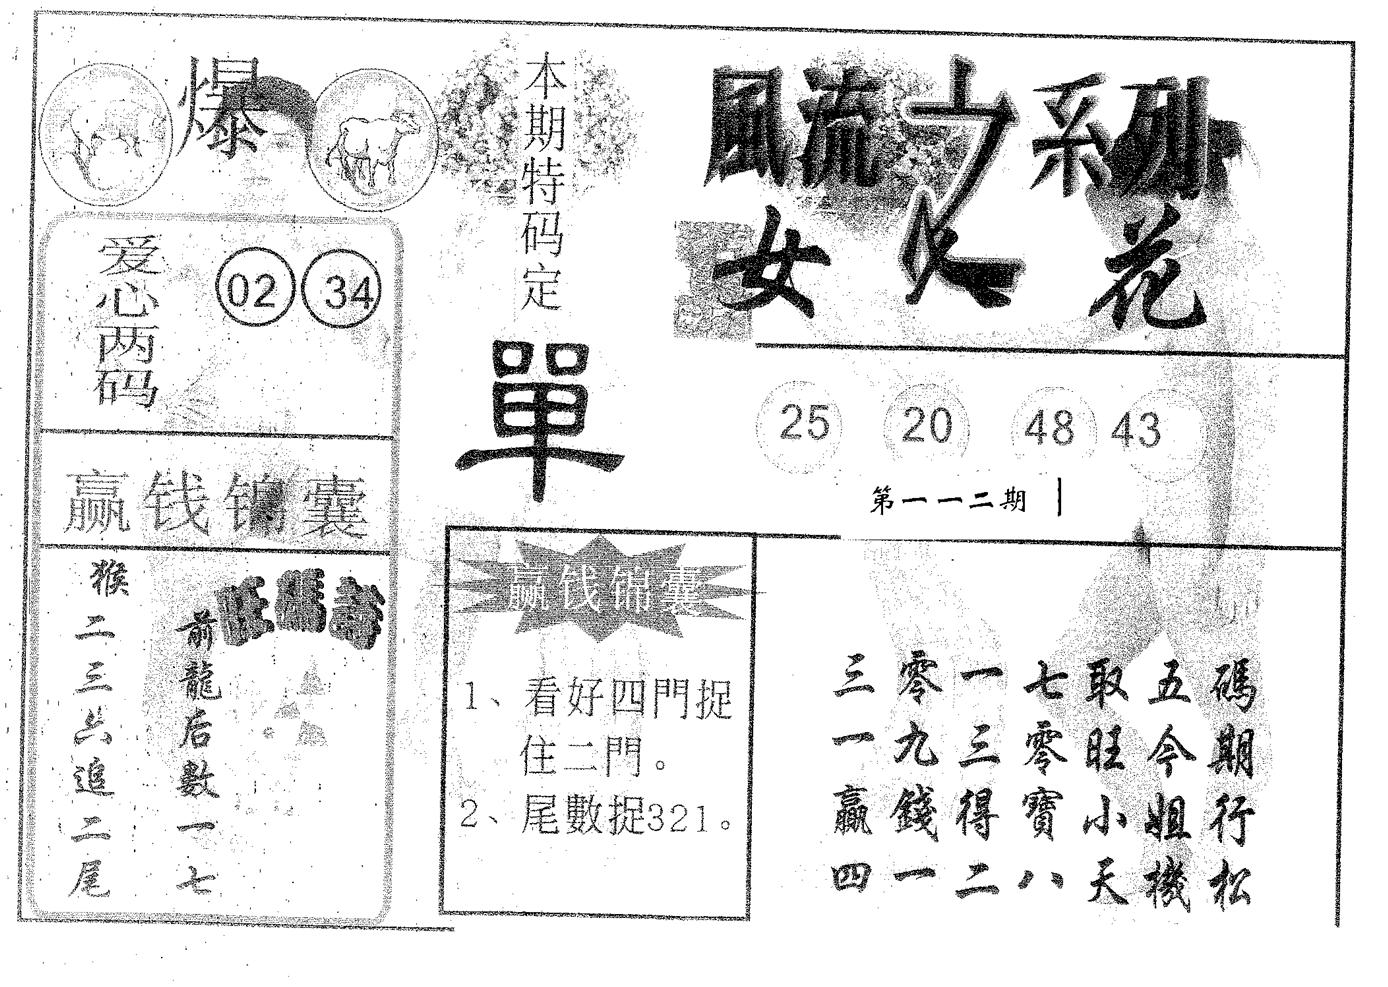 爆
爱心两码
02 34
赢钱锦囊
猴二三六追二尾
前龍后數一七
本期特码定
單
赢钱锦囊
1、看好四門捉
住二門。
2、尾數捉321。
風流之系列
女人花
25 20 48 43
第一一二期
三零一七取五碼
一九三零旺今期
贏錢得寶小姐行
四一二八天機松